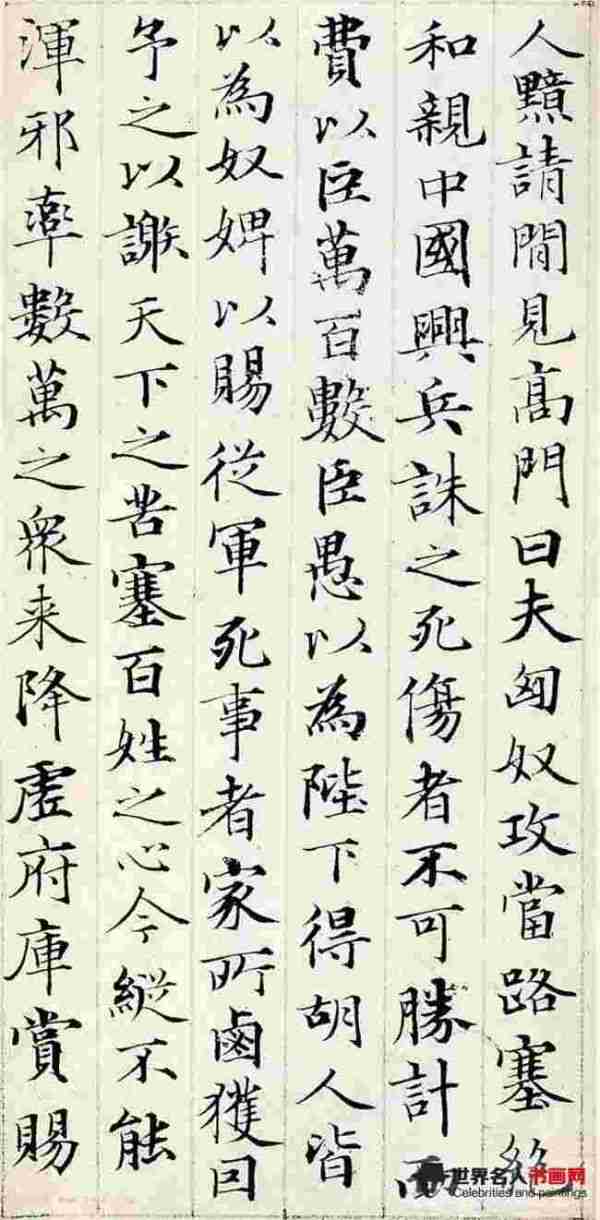 人黯請閒見高門曰夫匈奴攻當路塞絶
和親中國興兵誅之死傷者不可勝計而
費以巨萬百數臣愚以為陛下得胡人皆
以為奴婢以賜從軍死事者家所鹵獲因
予之以謝天下之苦塞百姓之心今縱不能
渾邪率數萬之衆来降虛府庫賞賜
世界名人书画网
Celebrities and paintings